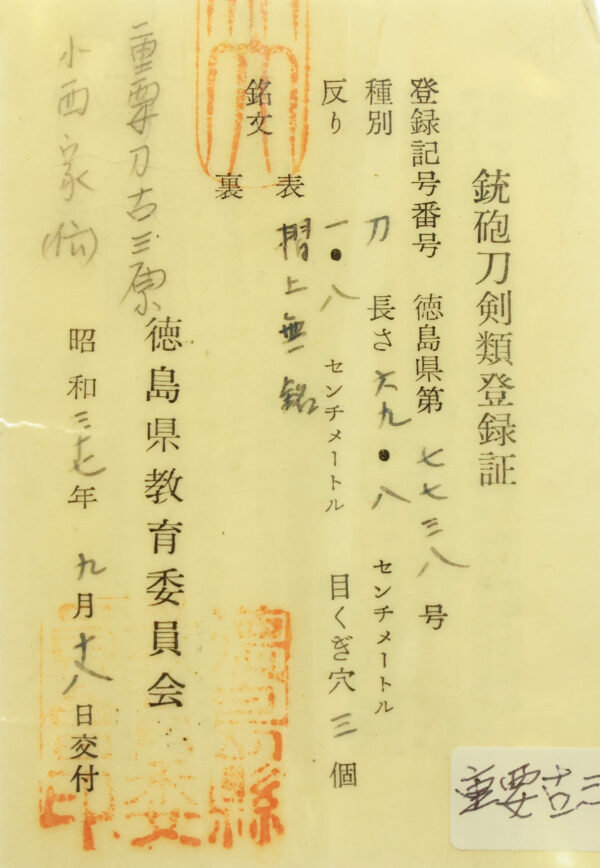 銃砲刀剣類登録証
登録記号番号 徳島県第 七七三八 号
種別 刀 長さ 六九・八 センチメートル
反り 一・八 センチメートル 目くぎ穴 三 個
銘文
表 摺上無銘
裏
徳島県教育委員会
重要刀古三原
昭和三十七年 九月十八日交付
小西家(伝)
重要古三